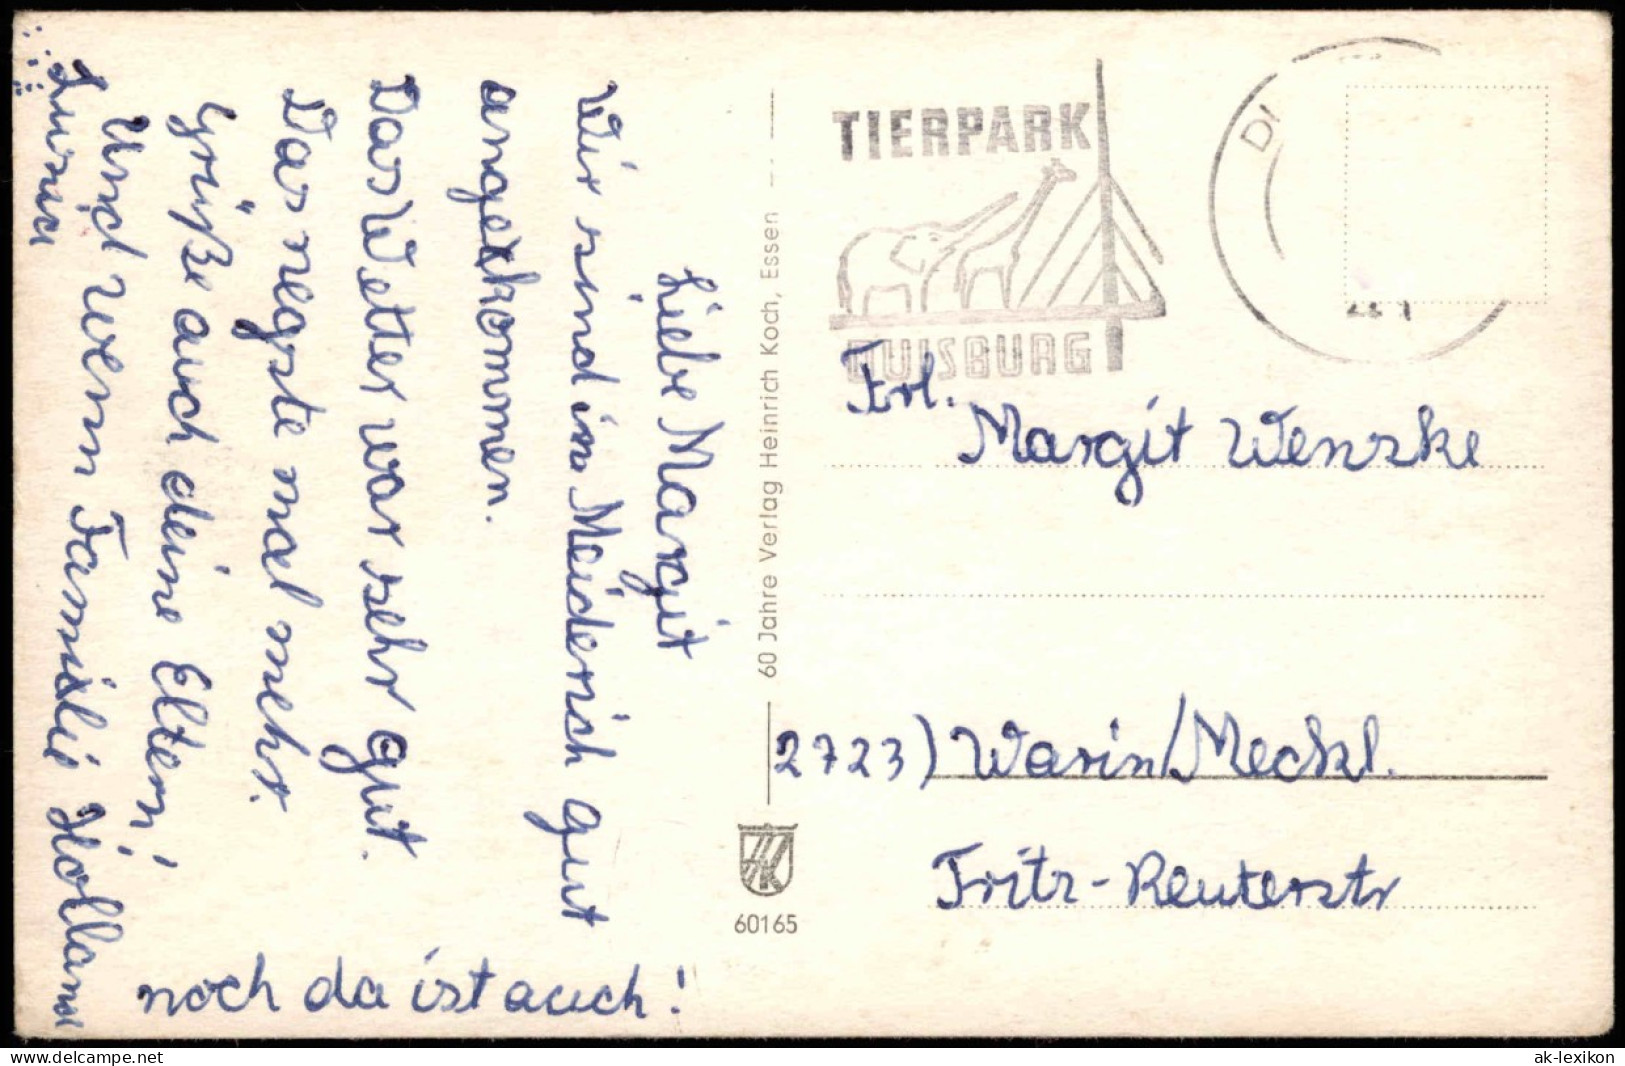 Liebe Margit
Wir sind in Meiderich gut
angekommen.
Das Wetter war sehr gut.
Das negste mal mehr.
Grüße auch deine Eltern!
Und wenn Familie Holland
noch da ist auch!
60 Jahre Verlag Heinrich Koch, Essen
60165
TIERPARK
DUISBURG
Frl.
Margit Wenzke
2723) Warin/Meckl.
Fritz-Reuterstr
www.delcampe.net
ak-lexikon